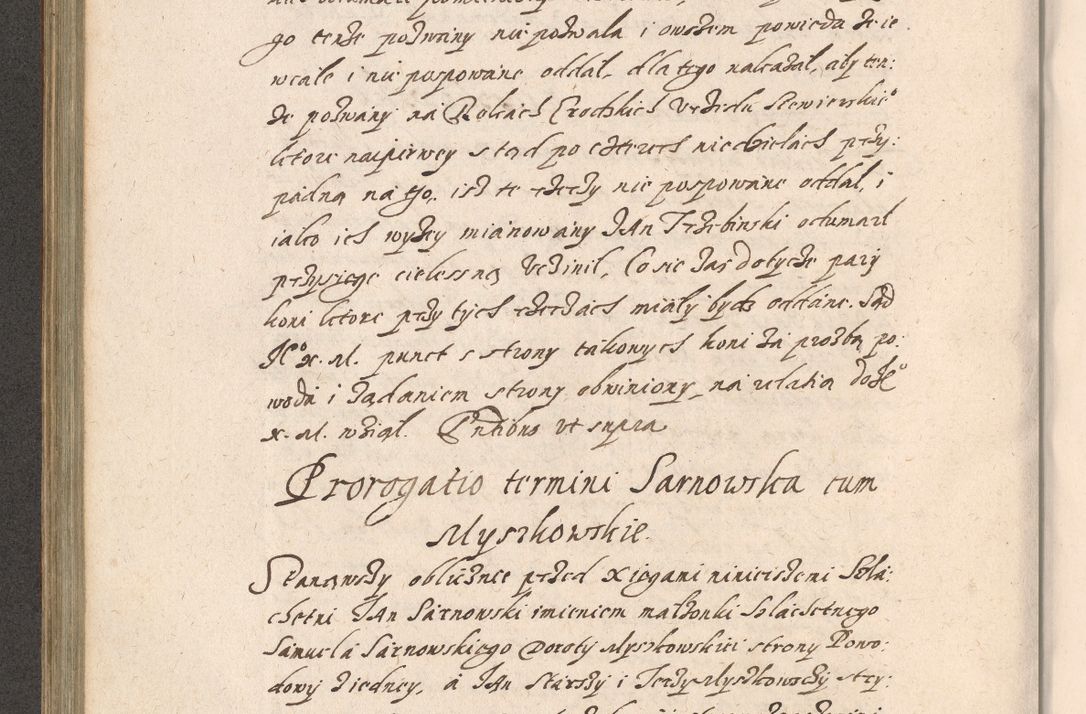 go tenże pozwany nie pozwala i owszem powieda że ie
wcale i nie pospowane oddał, dla tego nakazał, aby ten:
że pozwany na Rokach Grodzkich Vrzędu Siewierskieº
ktore napierwey s tąd po czterech niedzielach przy:
padną na tỹo, isz te rzeczy nie pospowane oddał, i
iako ich wyżey mianowany JAn Trzebinski odumarł
przysięgę cielesną Vczinił, Co sie zas dotycze pary
koni ktore przy tych rzeczach miały bydz oddane. Sąd
Jeº x. M. punct s strony takowych koni za prozbą po:
woda i żądaniem strony obwiniony, na relatią do Jeº
x. M. wziął. Pntibus vt supra
Prorogatio termini Sarnowska cum
Myszkowskie.
Stanąwszy obliznce przed Xięgami ninieiszemi Szla:
chetni JAn Sarnowski imieniem małżonki Szlachetnego
Samuela Sarnowskiego Doroty Myszkowskiei strony Powo:
dowy z iedney, a JAn Starszy i Jerzy Myszkowsczy stry: